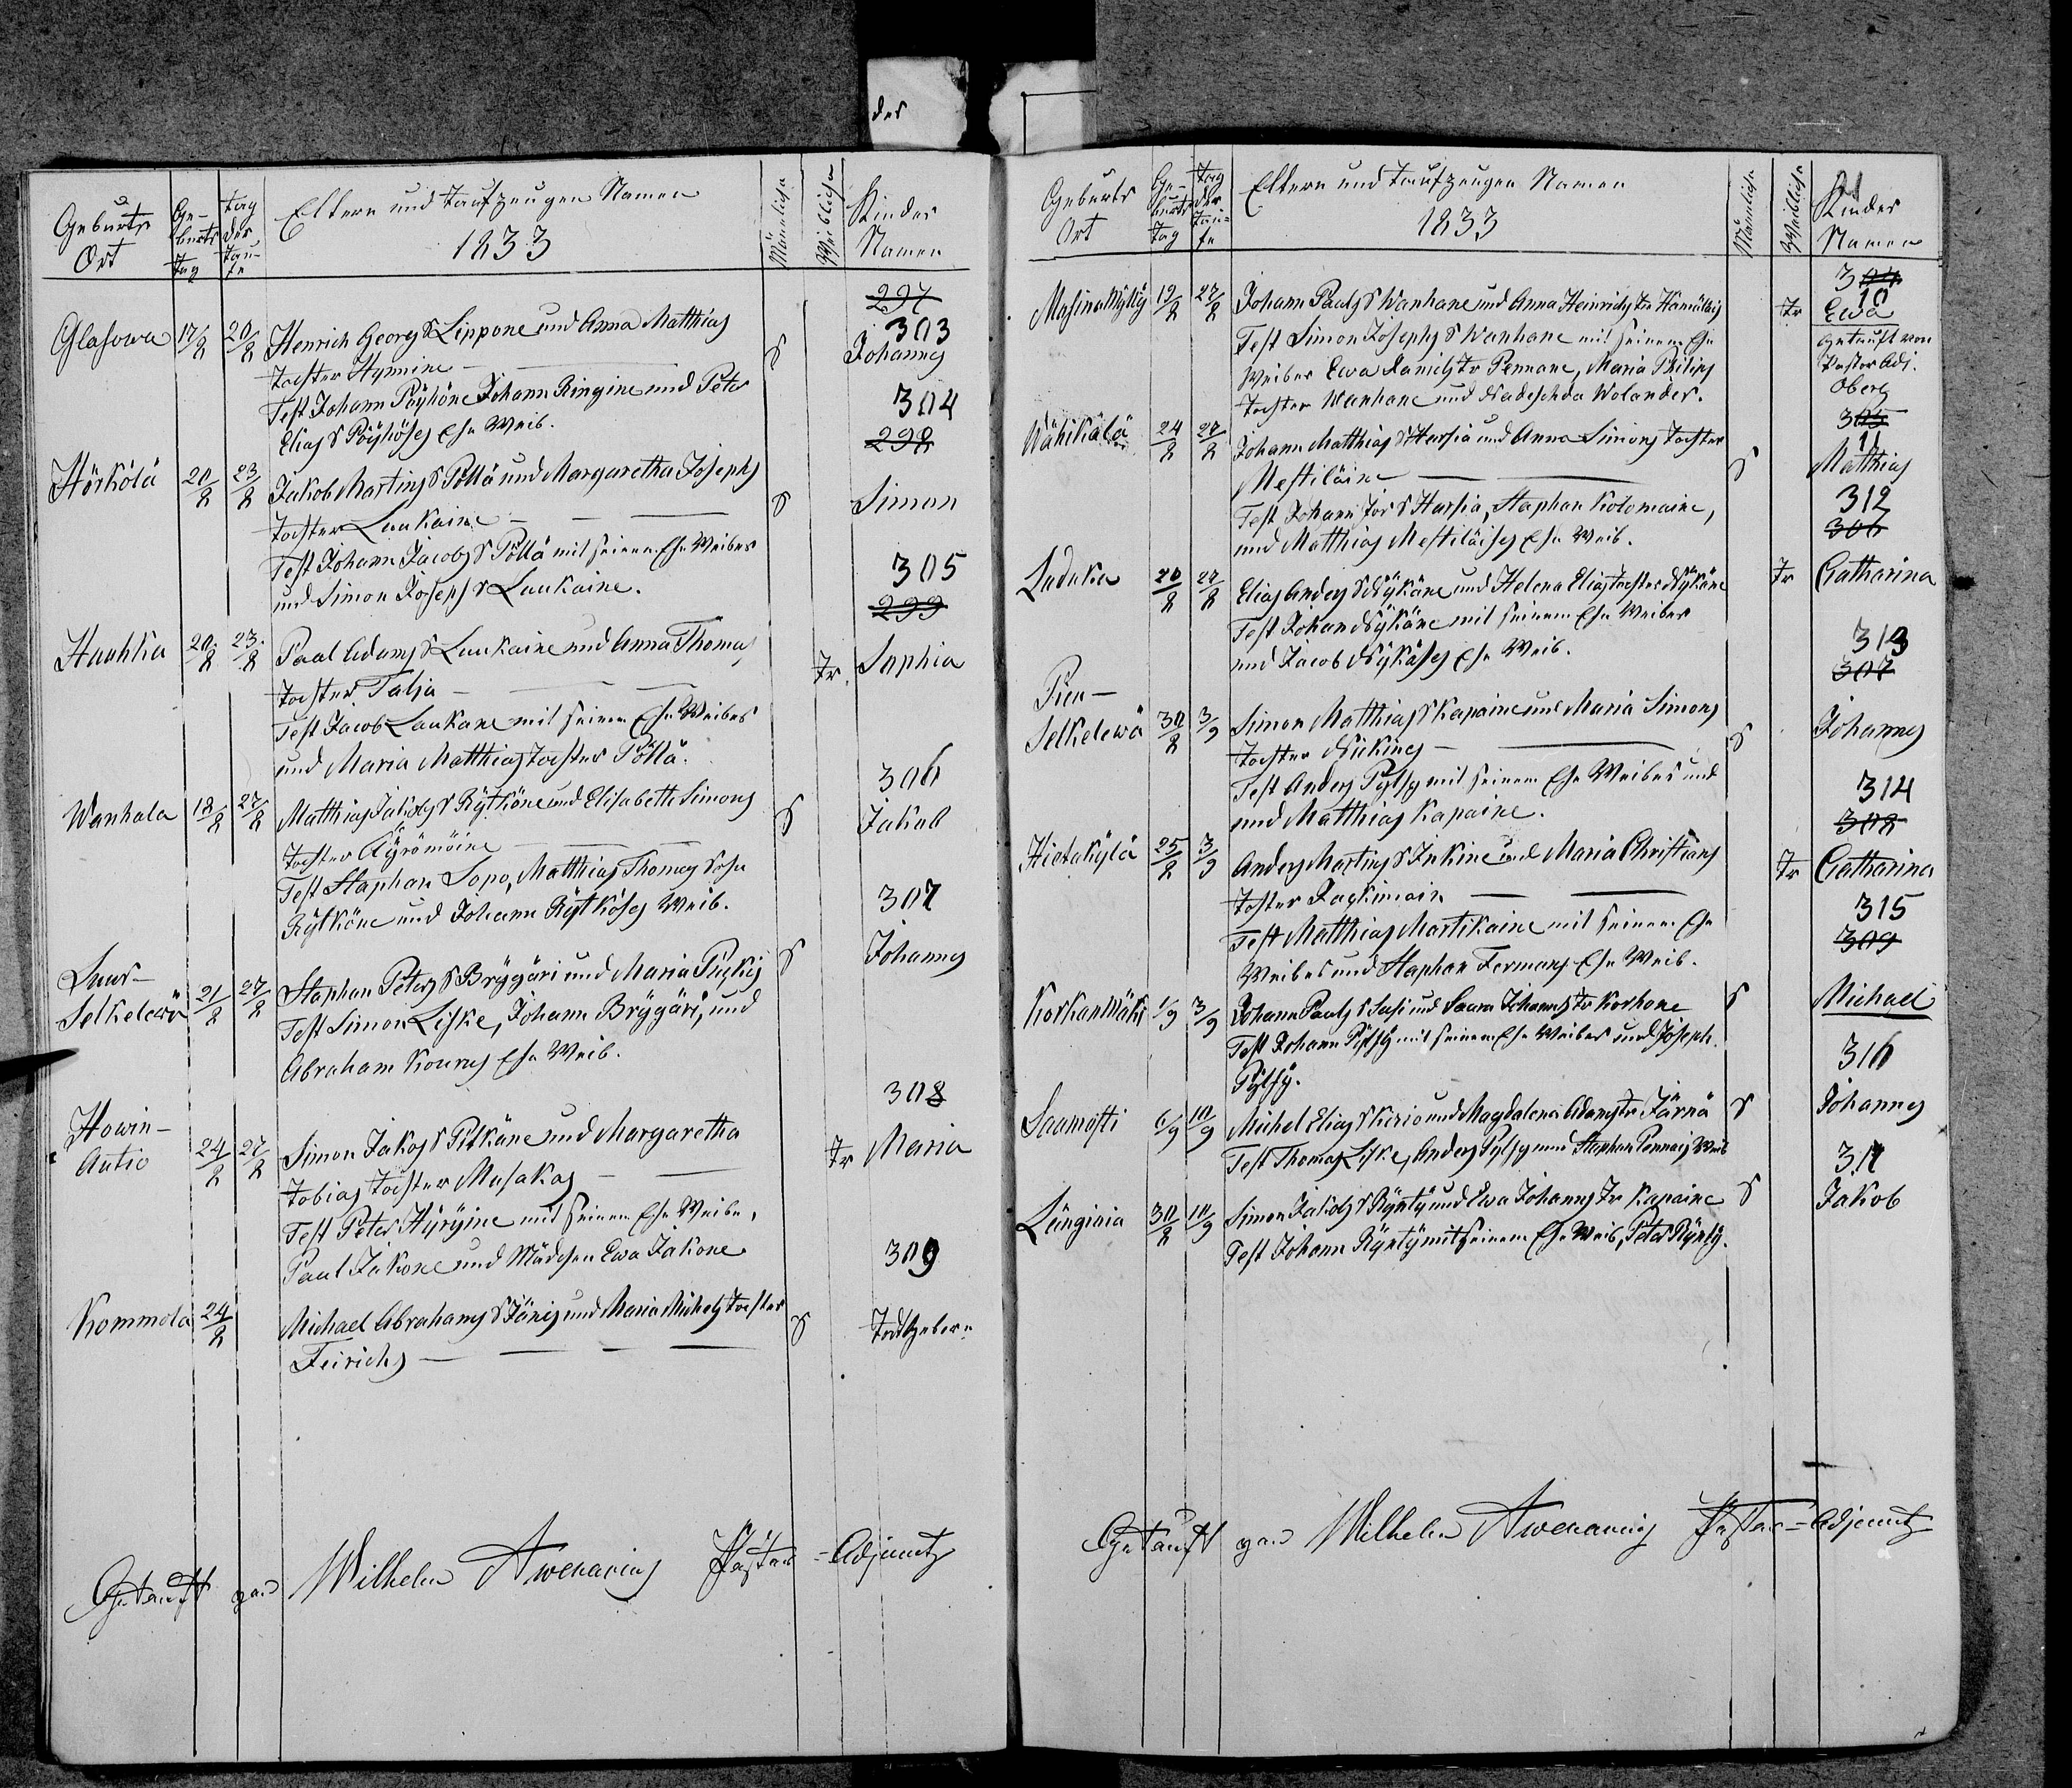 der
Geburts Ort
Geburts Tag
Tag der Taufe
Eltern und Taufzeugen Namen
1833
Mänliche
Weibliche
Kinder Namen
297
303
Glasowa 17/8 20/8 Henrich Georgs S Lippone und Anna Matthias S Johannes
Tochter Hynnine
Test Johann Pöyhöne Johann Ringine und Peter
Elias S Pöyhöses Ehe Weib.
304
298
Hörkölä 20/8 23/8 Jakob Martins S Pöllä und Margaretha Josephs S Simon
Tochter Laukaine
Test Johann Jacobs S Pöllä mit seinem Ehe Weibes
und Simon Joseph S Laukaine.
305
299
Hauhka 20/8 23/8 Paal Adams S Laukaine und Anna Thomas Tr. Sophia
Tochter Talja
Test Jacob Laukane mit seinem Ehe Weibes
und Maria Matthias Tochter Pöllä.
306
Wanhala 18/8 27/8 Matthias Jakobs S Rÿtköne und Elisabeth Simons S Jakob
Tochter Äÿrömöine
Test Staphan Sopo, Matthias Thomas Sohn
Rÿtköne und Johann Rÿtköses Weib.
307
Suur-
Selkelewä 21/8 27/8 Staphan Peters S Brÿggäri und Maria S Johannes
Test Simon Liske, Johann Brÿggäri, und
Abraham Ehe Weib.
308
Howin-
Autio 24/8 27/8 Simon Jakobs S Pitkäne und Margaretha Tr Maria
Tobias Tochter Musakas
Test Peter Hÿrÿine mit seinem Ehe Weibe,
Paul Jakone und Mädchen Ewa Jakone
309
Kommola 24/8 Michael Abrahams S Jänis und Maria Michels Tochter S Todtgeboren
Feirichs
Getauft von Wilhelm Awenarius Pastor-Adjunct
Geburts Ort
Geburts Tag
Tag der Taufe
Eltern und Taufzeugen Namen
1833
Mänliche
Weibliche
Kinder Namen
304
10
Musinakÿlÿ 19/8 27/8 Johann Pauls S Wanhane und Anna Heinrichs Tr Hämäläis Tr Ewa
Test Simon Josephs S Wanhane mit seinem Ehe getauft von
Weibes Ewa Daniels Tr Pennane, Maria Philips Pastor Adj.
Tochter Wanhane und Nadeschda Wolander. Oberg
305
11
Wähikälä 24/8 27/8 Johann Matthias S Hursia und Anna Simons Tochter S Matthias
Mestiläine
Test Johann S Hursia, Staphan Kolomaine,
und Matthias Mestiläises Ehe Weib.
312
306
Laduka 20/8 27/8 Elias Anders S Nÿkäne und Helena Elias Tochter Nÿkäne Tr Catharina
Test Johan Nÿkäne mit seinem Ehe Weibes
und Jacob Nÿkäses Ehe Weib.
313
307
Pien-
Selkelewä 30/8 3/9 Simon Matthias S Kapaine und Maria Simons S Johannes
Tochter Nickines
Test Anders Pÿlsÿ mit seinem Ehe Weibes und
und Matthias Kapaine.
314
308
Hietakÿlä 25/8 3/9 Anders Martins S Inkine und Maria Christians Tr Catharina
Tochter
Test Matthias Martikaine mit seinem Ehe
Weibes und Staphan Fermans Ehe Weib.
315
309
KorkanMäki 1/9 3/9 Johann Pauls S Susi und Saara Johanns Tr Korhone S Michael
Test Johann Pÿlsÿ mit seinem Ehe Weibes und Joseph
Pÿlsÿ.
316
Saamosti 6/9 10/9 Michel Elias S Kirio und Magdalena Adams Tr Järnä S Johannes
Test Thomas Liske, Anders Pÿlsÿ und Staphan Pennais Weib
317
Länginia 30/8 10/9 Simon Jakobs S Rÿntÿ und Ewa Johanns Tr Kapaine S Jakob
Test Johann Rÿntÿ mit seinem Ehe Weib, Peter Rÿntÿ.
Getauft von Wilhelm Awenarius Pastor-Adjunct